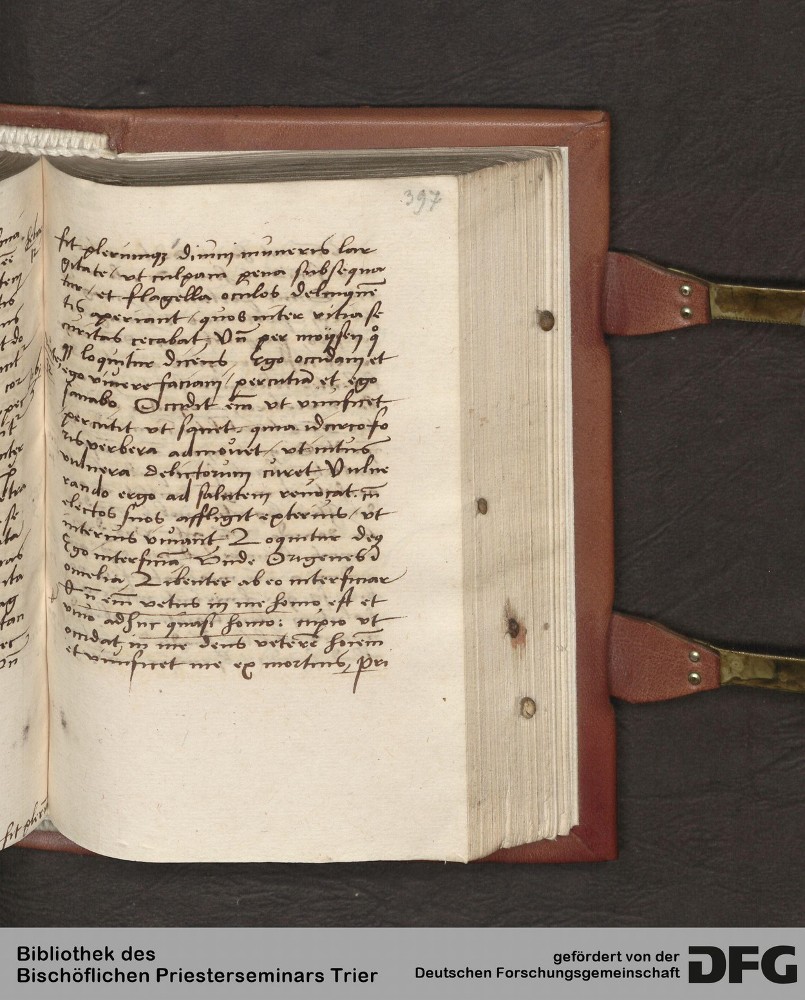 397
fit plerumqz diuinj muneris lar
gitate / vt culpam pena subsequa
tur / et flagella oculos delinquē
tis aperiant / quos inter vitia se
curitas cecabat, Vn̄ per moÿsen
loquitur dicens Ego occidam et
ego viuere faciam / percutiā et ego
sanabo Occidit em̄ vt viuificet
percutit vt sanet, quia idcirco fo
ris verbera admouet / vt intus
vulnera delictorum curet Vulne
rando ergo ad salutem reuocat
electos suos affligit exterius / vt
interius viuant Loquitur deq
Ego interficiā, Vnde Origenes ī
omelia, Libenter ab eo interficiar
em̄ vetus in me homo est et
viuo adhuc quasi homo: cupio vt
occidat in me deus veterē hoīem
et viuificet me ex mortuis, pri
fit plerū
Bibliothek des
Bischöflichen Priesterseminars Trier
gefördert von der
Deutschen Forschungsgemeinschaft
DFG